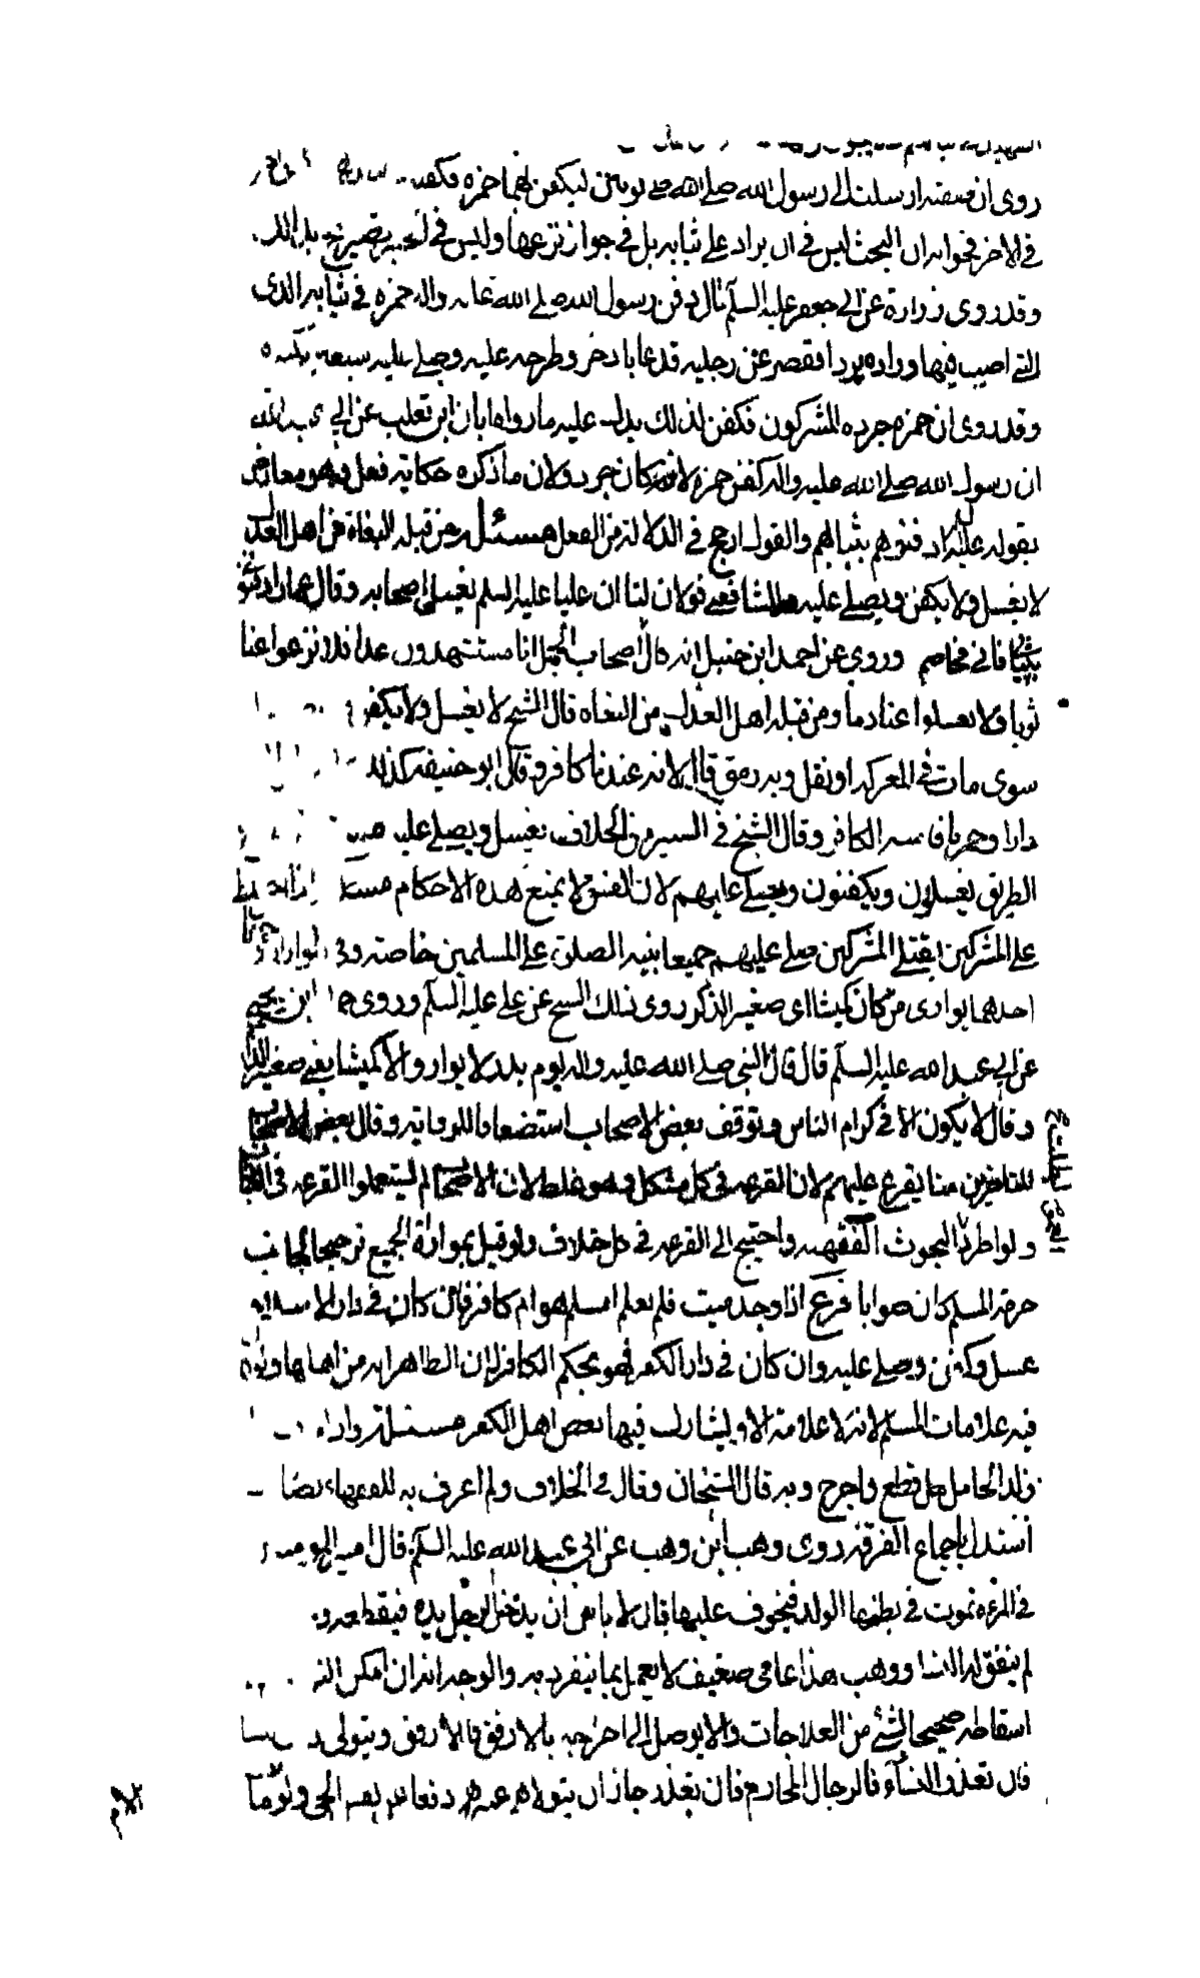 روى ان صفيه ارسلت الى رسول الله صلى الله عليه ثوبين ليكفن بهما حمزه فكفنه
في الاخر فجوابه ان البحث ليس في ان يزاد على ثيابه بل في جواز نزعها وليس في الخبر
وقد روى زرارة عن ابي جعفر عليه السلم قال دفن رسول الله صلى الله عليه واله حمزه في ثيابه الذى
التى اصيب فيها وزاده بردا فقصر عن رجليه فدعا باذخر وطرحه عليه وصلى عليه سبعين تكبيره
وقد روى ان حمزه جرده المشركون فكفن لذلك يدل عليه ما رواه ابان ابن تغلب عن ابي عبد الله
ان رسول الله صلى الله عليه واله كفن حمزه لانه كان جرد ولان ما ذكره حكاية فعل وهو معارض
بقوله عليه لم ادفنوهم بثيابهم والقول ارجح في الدلالة من الفعل مسئلة ومن قتله البغاة من اهل العدل
لا يغسل ولا يكفن ويصلى عليه وللشافعى قولان لنا ان عليا عليه السلم لم يغسل اصحابه وقال عمار ادفنونى
بثيابى فانى مخاصم وروى عن احمد ابن حنبل انه قال اصحاب الجمل انا مستشهدون غدا فلا تنزعوا عنا
ثوبا ولا تغسلوا عنا دما ومن قتله اهل العدل من البغاه قال الشيخ لا يغسل ولا يكفن
سوى مات في المعركه او نقل وبه رمق قال لانه عندنا كافر وقال ابو حنيفه كذلك
دارا وحربا فاشبه الكافر وقال الشيخ في السير من الخلاف يغسل ويصلى عليه
الطريق يغسلون ويكفنون ويصلى عليهم لان الفسق لا يمنع هذه الاحكام مسئلة
على المشركين بقتلى المشركين صلى عليهم جميعا بنيه الصلوة على المسلمين خاصة وفى
احدهما يوارى من كان كميشا اى صغير الذكر روى ذلك الشيخ عن على عليه السلم وروى حماد ابن يحيى
عن ابي عبد الله عليه السلم قال قال النبى صلى الله عليه واله يوم بدر لا يواروا الا كميشا يعنى صغير الذكر
وقال لا يكون الا في كرام الناس وتوقف بعض الاصحاب استضعافا للروايه وقال بعض
المتاخرين منا يقرع عليهم لان القرعه في كل مشكل وهو غلط لان الاصحاب لم يستعملوا القرعه في العبادات
ولو اطرد البحوث الفقهيه واحتيج الى القرعه في كل خلاف ولو قيل بمواراة الجميع ترجيحا لجانب
حرمة المسلم كان صوابا فرع اذا وجد ميت فلم يعلم امسلم هو ام كافر فان كان في دار الاسلام
غسل وكفن وصلى عليه وان كان في دار الكفر فهو بحكم الكافر لان الظاهر انه من اهلها ولو كان
فيه علامات المسلم لانه لا علامة الا ويشارك فيها بعض اهل الكفر مسئلة واذا مات
ولد الحامل قطع واخرج وبه قال الشيخان وقال في الخلاف ولم اعرف به للفقهاء نصا
استدل باجماع الفرقة وروى وهب ابن وهب عن ابي عبد الله عليه السلم قال قال امير المومنين
في المرءه تموت في بطنها الولد فيتخوف عليها قال لا باس ان يدخل الرجل يده فيقطعه و
لم يتفق له النسا ووهب هذا عامى ضعيف لا يعمل بما ينفرد به والوجه انه ان امكن
اسقاطه صحيحا بشئ من العلاجات والا توصل الى اخراجه بالارفق فالارفق ويتولى ذلك النسا
فان تعذر النساء فالرجال المحارم فان تعذر جاز ان يتولاه غيرهم دفعا عن نفس الحى ولو ماتت